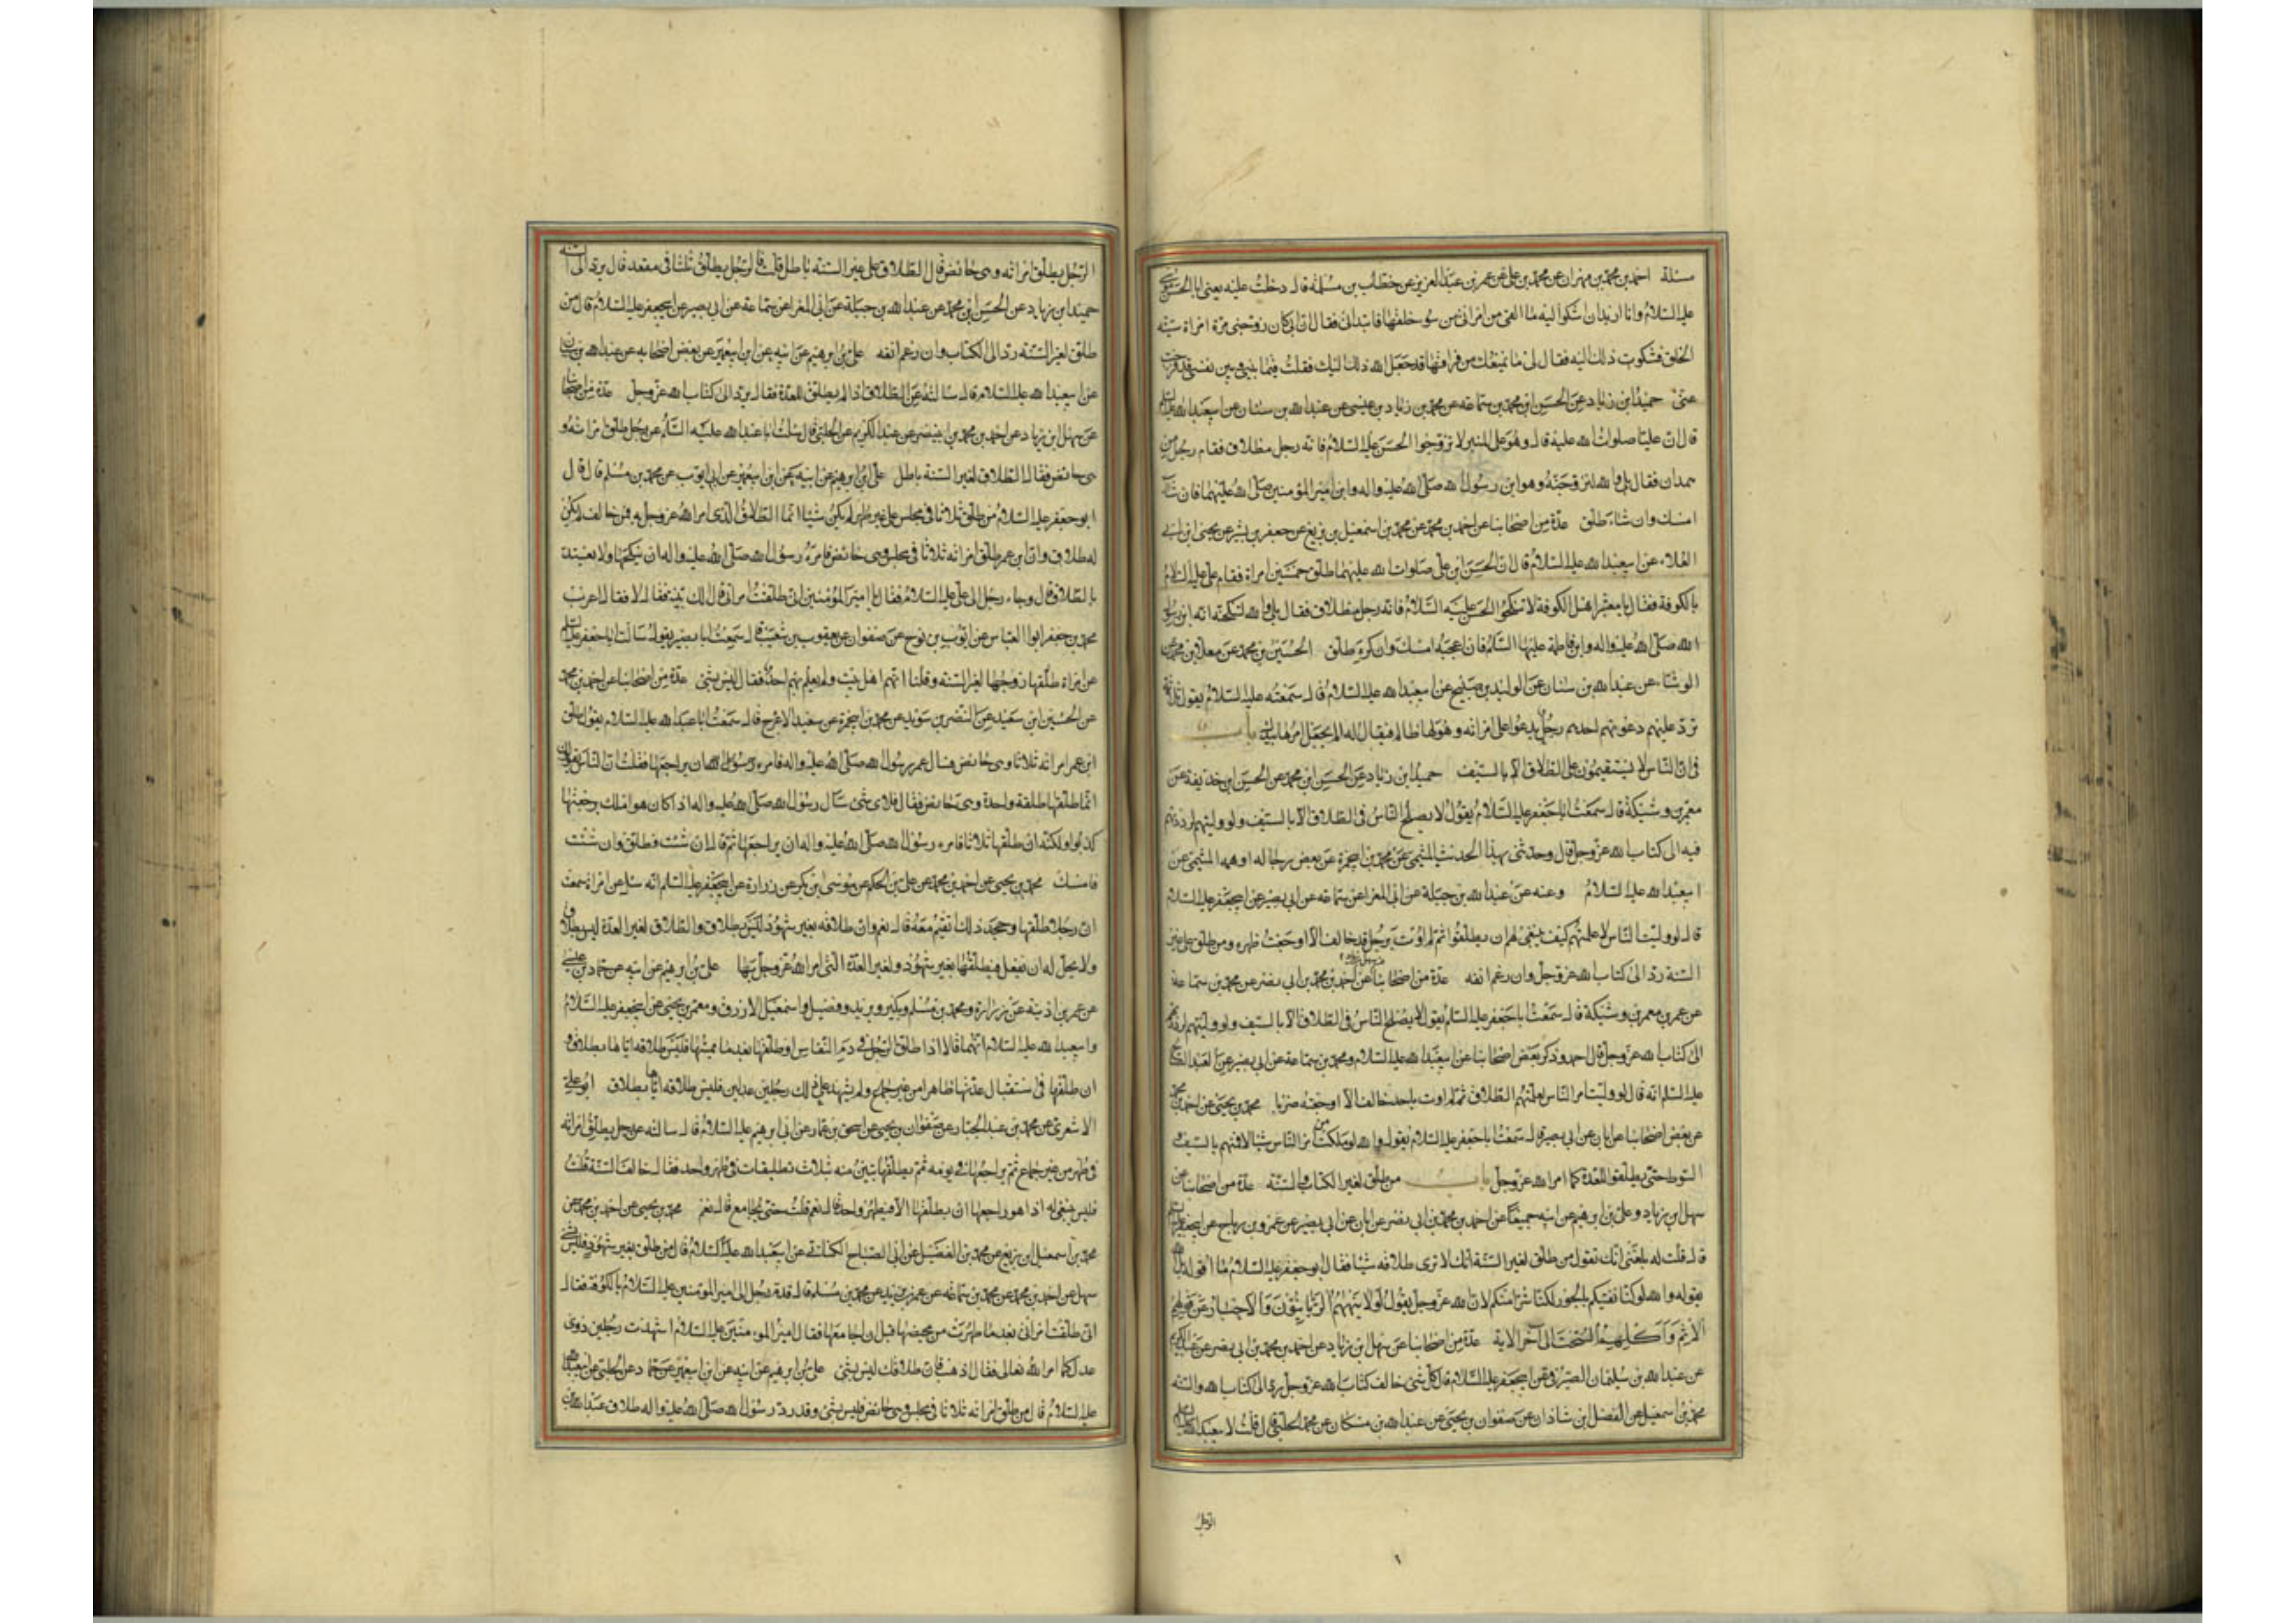 مسئلة احمد بن محمد بن مهران عن محمد بن علي عن عمر بن عبد العزيز عن خطاب بن مسلمة قال دخلت عليه يعني ابا الحسن موسى
عليه السلام وانا اريد ان اشكوا اليه ما القى من امراتي من سوء خلقها فابتداني فقال ان ابي كان زوجني مرة امراة سيئة
الخلق فشكوت ذلك اليه فقال لي ما يمنعك من فراقها قد جعل الله ذلك اليك فقلت فيما بيني وبين نفسي قد فرجت
عني حميد ابن زياد عن الحسن ابن محمد بن سماعه عن محمد بن زياد بن عيسى عن عبد الله بن سنان عن ابيعبد الله عليه السلام
قال ان عليا صلوات الله عليه قال وهو على المنبر لا تزوجوا الحسن عليه السلام فانه رجل مطلاق فقام رجل من
همدان فقال بلى والله لنزوجنه وهو ابن رسول الله صلى الله عليه واله وابن امير المؤمنين صلى الله عليهما فان شاء
امسك وان شاء طلق عدة من اصحابنا عن احمد بن محمد عن محمد بن اسمعيل بن بزيع عن جعفر بن بشير عن يحيى ابن ابي
العلاء عن ابيعبد الله عليه السلام قال ان الحسن ابن علي صلوات الله عليهما طلق خمسين امراة فقام علي عليه السلام
بالكوفة فقال يا معشر اهل الكوفة لا تنكحوا الحسن عليه السلام فانه رجل مطلاق فقال بلى والله لننكحنه انه ابن رسول
الله صلى الله عليه واله وابن فاطمة عليها السلام فان اعجبه امسك وان كره طلق الحسين بن محمد عن معلى بن محمد عن
الوشاء عن عبد الله بن سنان عن الوليد بن صبيح عن ابيعبد الله عليه السلام قال سمعته عليه السلام يقول ثلثة
ترد عليهم دعوتهم احدهم رجل يدعوا على امراته وهو لها ظالم فيقال له الم يجعل امرها بيدك باب
في ان الناس لا يستقيمون على الطلاق الا بالسيف حميد ابن زياد عن الحسن ابن محمد عن الحسن ابن حذيفة عن
معمر بن وشيكة قال سمعت ابا جعفر عليه السلام يقول لا يصلح الناس في الطلاق الا بالسيف ولو وليتهم لرددتهم
فيه الى كتاب الله عز وجل قال وحدثني بهذا الحديث الميثمي عن محمد بن ابيحمزة عن بعض رجاله او همه الميثمي عن
ابيعبد الله عليه السلام وعنه عن عبد الله بن جبلة عن ابي المغرا عن سماعه عن ابي بصير عن ابيجعفر عليه السلام
قال لو وليت الناس لاعلمتهم كيف ينبغي لهم ان يطلقوا ثم لم اوت برجل قد خالف الا اوجعت ظهره ومن طلق على غير
السنة رد الى كتاب الله عز وجل وان رغم انفه عدة من اصحابنا عن احمد بن محمد بن ابي نصر عن محمد بن سماعة
عن عمر بن معمر بن وشيكة قال سمعت ابا جعفر عليه السلم يقول لا يصلح الناس في الطلاق الا بالسيف ولو وليتهم لرددتهم
الى كتاب الله عز وجل قال احمد وذكر بعض اصحابنا عن ابيعبد الله عليه السلام ومحمد بن سماعة عن ابي بصير عن العبد الصالح
عليه السلم انه قال لو وليت امر الناس لعلمتهم الطلاق ثم لم اوت باحد خالف الا اوجعته ضربا محمد بن يحيى عن احمد بن محمد
عن بعض اصحابنا عن ابان عن ابي بصير قال سمعت ابا جعفر عليه السلام يقول والله لو ملكت من امر الناس شيئا لاقمتهم بالسيف و
السوط حتى يطلقوا للعدة كما امر الله عز وجل باب من طلق لغير الكتاب والسنة عدة من اصحابنا عن
سهل بن زياد وعلي بن ابرهيم عن ابيه جميعا عن احمد بن محمد بن ابي نصر عن ابان عن ابي بصير عن عمرو بن رياح عن ابيجعفر عليه السلم
قال قلت له بلغني انك تقول من طلق لغير السنة انك لا ترى طلاقه شيئا فقال ابو جعفر عليه السلام ما اقوله بل الله
يقوله والله لو كنا نفتيكم بالجور لكنا شرا منكم لان الله عز وجل يقول لولا ينهيهم الربانيون والاحبار عن قولهم
الاثم واكلهم السحت الى آخر الاية عدة من اصحابنا عن سهل بن زياد عن احمد بن محمد بن ابي نصر عن عبد الكريم
عن عبد الله بن سليمان الصيرفي عن ابيجعفر عليه السلام قال كل شئ خالف كتاب الله عز وجل رد الى كتاب الله والسنة
محمد بن اسمعيل عن الفضل ابن شاذان عن صفوان بن يحيى عن عبد الله بن مسكان عن محمد الحلبي قال قلت لابيعبد الله عليه السلم
الرجل
الرجل يطلق امراته وهي حائض قال الطلاق على غير السنة باطل قلت فالرجل يطلق ثلثا في مقعد قال يرد الى السنة
حميد ابن زياد عن الحسن ابن محمد عن عبد الله بن جبلة عن ابي المغرا عن سماعة عن ابي بصير عن ابيجعفر عليه السلام قال من
طلق لغير السنة رد الى الكتاب وان رغم انفه علي بن ابرهيم عن ابيه عن ابن ابيعمير عن بعض اصحابه عن عبد الله بن سنان
عن ابيعبد الله عليه السلام قال سالته عن الطلاق اذا لم يطلق للعدة فقال يرد الى كتاب الله عز وجل عدة من اصحابنا
عن سهل ابن زياد عن احمد بن محمد بن ابينصر عن عبد الكريم عن الحلبي قال سئلت ابا عبد الله عليه السلم عن رجل طلق امراته و
هي حائض فقال الطلاق لغير السنة باطل علي بن ابرهيم عن ابيه عن ابن ابيعمير عن ابي ايوب عن محمد بن مسلم قال قال
ابو جعفر عليه السلام من طلق ثلاثا في مجلس على غير طهر لم يكن شيئا انما الطلاق الذي امر الله عز وجل به فمن خالف لم يكن
له طلاق وان ابن عمر طلق امراته ثلاثا في مجلس وهي حائض فامره رسول الله صلى الله عليه واله ان ينكحها ولا يعتد
بالطلاق قال وجاء رجل الى علي عليه السلام فقال يا امير المؤمنين اني طلقت امراتي قال الك بينة فقال لا فقال اعزب
محمد بن جعفر ابوا العباس عن ايوب بن نوح عن صفوان عن يعقوب بن شعيب قال سمعت ابا بصير يقول سالت ابا جعفر عليه السلم
عن امراة طلقها زوجها لغير السنة وقلنا انهم اهل بيت ولم يعلم بهم احد فقال ليس بشئ عدة من اصحابنا عن احمد بن محمد
عن الحسين ابن سعيد عن النضر بن سويد عن محمد بن ابيحمزة عن سعيد الاعرج قال سمعت ابا عبد الله عليه السلام يقول طلق
ابن عمر امراته ثلاثا وهي حائض فسال عمر رسول الله صلى الله عليه واله فامره رسول الله ان يراجعها فقلت ان الناس يقولون
انما طلقها طلقة واحدة وهي حائض فقال فلاي شئ سال رسول الله صلى الله عليه واله اذا كان هو املك برجعتها
كذبوا ولكنه ان طلقها ثلاثا فامره رسول الله صلى الله عليه واله ان يراجعها ثم قال ان شئت وطلق وان شئت
فامسك محمد بن يحيى عن احمد بن محمد عن علي بن الحكم عن موسى ابن بكر عن زرارة عن ابيجعفر عليه السلم انه سئل عن امراة سمعت
ان رجلا طلقها وجحد ذلك اتقيم معه قال نعم وان طلاقه بغير شهود ليس بطلاق والطلاق لغير العدة ليس بطلاق
ولا يحل له ان يفعل فيطلقها بغير شهود ولغير العدة التي امر الله عز وجل بها علي بن ابرهيم عن ابيه عن حماد بن عيسى
عن عمر بن اذينة عن زرارة ومحمد بن مسلم وبكير وبريد وفضيل واسمعيل الازرق ومعمر بن يحيى عن ابيجعفر عليه السلام
وابيعبد الله عليه السلام انهما قالا اذا طلق الرجل في دم النفاس او طلقها بعد ما يمسها فليس طلاقه اياها بطلاق و
ان طلقها في استقبال عدتها طاهرا من غير جماع ولم يشهد على ذلك رجلين عدلين فليس طلاقه اياها بطلاق ابو علي
الاشعري عن محمد بن عبد الجبار عن صفوان بن يحيى عن اسحق بن عمار عن ابي ابرهيم عليه السلام قال سالته عن رجل يطلق امراته
في طهر من غير جماع ثم يراجعها في يومه ثم يطلقها تبين منه بثلاث تطليقات في طهر واحد فقال خالف السنة قلت
فليس ينبغي له اذا هو راجعها ان يطلقها الا في طهر واحد قال نعم قلت حتى يجامع قال نعم محمد بن يحيى عن احمد بن محمد عن
محمد بن اسمعيل ابن بزيع عن محمد بن الفضيل عن ابي الصباح الكناني عن ابيعبد الله عليه السلام قال من طلق بغير شهود فليس بشئ
سهل عن احمد بن محمد عن محمد بن سماعه عن عمر بن يزيد عن محمد بن مسلم قال قدم رجل الى امير المؤمنين عليه السلام بالكوفة فقال
اني طلقت امراتي بعد ما طهرت من محيضها قبل ان اجامعها فقال امير المؤمنين عليه السلام اشهدت رجلين ذوي
عدل كما امر الله تعالى فقال لا فقال اذهب فان طلاقك ليس بشئ علي بن ابرهيم عن ابيه عن ابن ابيعمير عن حماد عن الحلبي عن ابيعبد الله
عليه السلام قال من طلق امراته ثلاثا في مجلس وهي حائض فليس بشئ وقد رد رسول الله صلى الله عليه واله طلاق عبد الله بن